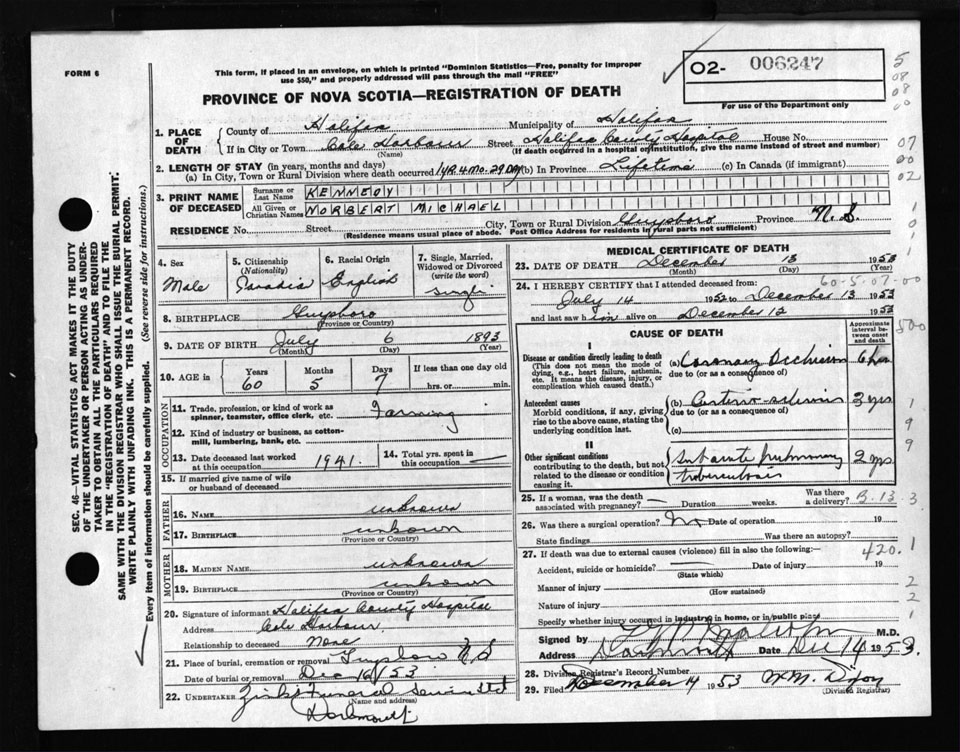 FORM 6
This form, if placed in an envelope, on which is printed "Dominion Statistics—Free, penalty for improper
use $50," and properly addressed will pass through the mail "FREE"
O2- 006247
For use of the Department only
PROVINCE OF NOVA SCOTIA—REGISTRATION OF DEATH
5
08
08
00
07
00
02
1
0
1
SEC. 46—VITAL STATISTICS ACT MAKES IT THE DUTY
OF THE UNDERTAKER OR PERSON ACTING AS UNDER-
TAKER TO OBTAIN ALL THE PARTICULARS REQUIRED
IN THE "REGISTRATION OF DEATH" AND TO FILE THE
SAME WITH THE DIVISION REGISTRAR WHO SHALL ISSUE THE BURIAL PERMIT.
WRITE PLAINLY WITH UNFADING INK. THIS IS A PERMANENT RECORD.
Every item of information should be carefully supplied. (See reverse side for instructions.)
1. PLACE OF DEATH
County of Halifax Municipality of Halifax
If in City or Town Cole Harbour Street Halifax County Hospital House No.
(Name) (If death occurred in a hospital or institution, give the name instead of street and number)
2. LENGTH OF STAY (in years, months and days)
(a) In City, Town or Rural Division where death occurred 1 YR 4 Mo. 29 Day (b) In Province Lifetime (c) In Canada (if immigrant)
3. PRINT NAME OF DECEASED
Surname or Last Name KENNEDY
All Given or Christian Names NORBERT MICHAEL
RESIDENCE No. Street City, Town or Rural Division Guysboro Province N.S.
(Residence means usual place of abode. Post Office Address for residents in rural parts not sufficient)
4. Sex
Male
5. Citizenship
(Nationality)
Canadian
6. Racial Origin
English
7. Single, Married,
Widowed or Divorced
(write the word)
single
8. BIRTHPLACE Guysboro
(Province or Country)
9. DATE OF BIRTH July 6 1893
(Month) (Day) (Year)
10. AGE in
Years Months Days If less than one day old
60 5 7 hrs. or min.
OCCUPATION
11. Trade, profession, or kind of work as
spinner, teamster, office clerk, etc. Farming
12. Kind of industry or business, as cotton-
mill, lumbering, bank, etc.
13. Date deceased last worked
at this occupation 1941.
14. Total yrs. spent in
this occupation —
15. If married give name of wife
or husband of deceased
FATHER
16. NAME unknown
17. BIRTHPLACE unknown
(Province or Country)
MOTHER
18. MAIDEN NAME unknown
19. BIRTHPLACE unknown
(Province or Country)
20. Signature of informant Halifax County Hospital
Address Cole Harbour
Relationship to deceased None
21. Place of burial, cremation or removal Guysboro N S
Date of burial or removal Dec 16/53
22. UNDERTAKER Funeral Service Ltd
(Name and address)
Dartmouth
MEDICAL CERTIFICATE OF DEATH
23. DATE OF DEATH December 13 1953
(Month) (Day) (Year)
24. I HEREBY CERTIFY that I attended deceased from: 60-5-07-00
July 14 1952 to December 13 1953
and last saw him alive on December 12 1953
500
CAUSE OF DEATH
Approximate
interval be-
tween onset
and death
I
Disease or condition directly leading to death
(This does not mean the mode of
dying, e.g., heart failure, asthenia,
etc. It means the disease, injury, or
complication which caused death.)
(a) Coronary Occlusion 6 hrs
due to (or as a consequence of)
Antecedent causes
Morbid conditions, if any, giving
rise to the above cause, stating the
underlying condition last.
(b) Arterio-sclerosis 3 yrs
due to (or as a consequence of)
(c)
1
9
9
II
Other significant conditions
contributing to the death, but not
related to the disease or condition
causing it.
pulmonary
tuberculosis
25. If a woman, was the death
associated with pregnancy? — Duration weeks. Was there a delivery? B.13.3
26. Was there a surgical operation? No Date of operation 19
State findings Was there an autopsy?
27. If death was due to external causes (violence) fill in also the following:— 420.1
Accident, suicide or homicide? Date of injury 19
(State which)
Manner of injury
(How sustained)
Nature of injury
2
2
1
Specify whether injury occurred in industry, in home, or in public place
Signed by M.D.
Address Dartmouth Date Dec 14 1953.
28. Division Registrar's Record Number
29. Filed December 14 1953
(Division Registrar)